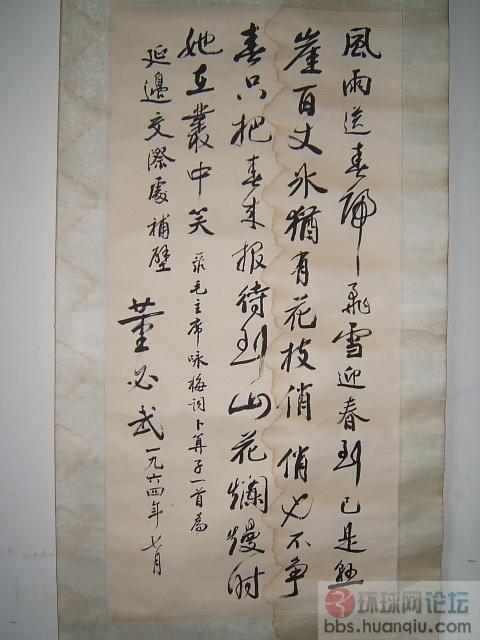 風雨送春歸飛雪迎春到已是懸
崖百丈冰猶有花枝俏俏也不争
春只把春来报待到山花爛熳时
她在叢中笑
录毛主席咏梅词卜算子一首为
延邊交際處補壁
董必武
一九六四年七月
环球网论坛
bbs.huanqiu.com